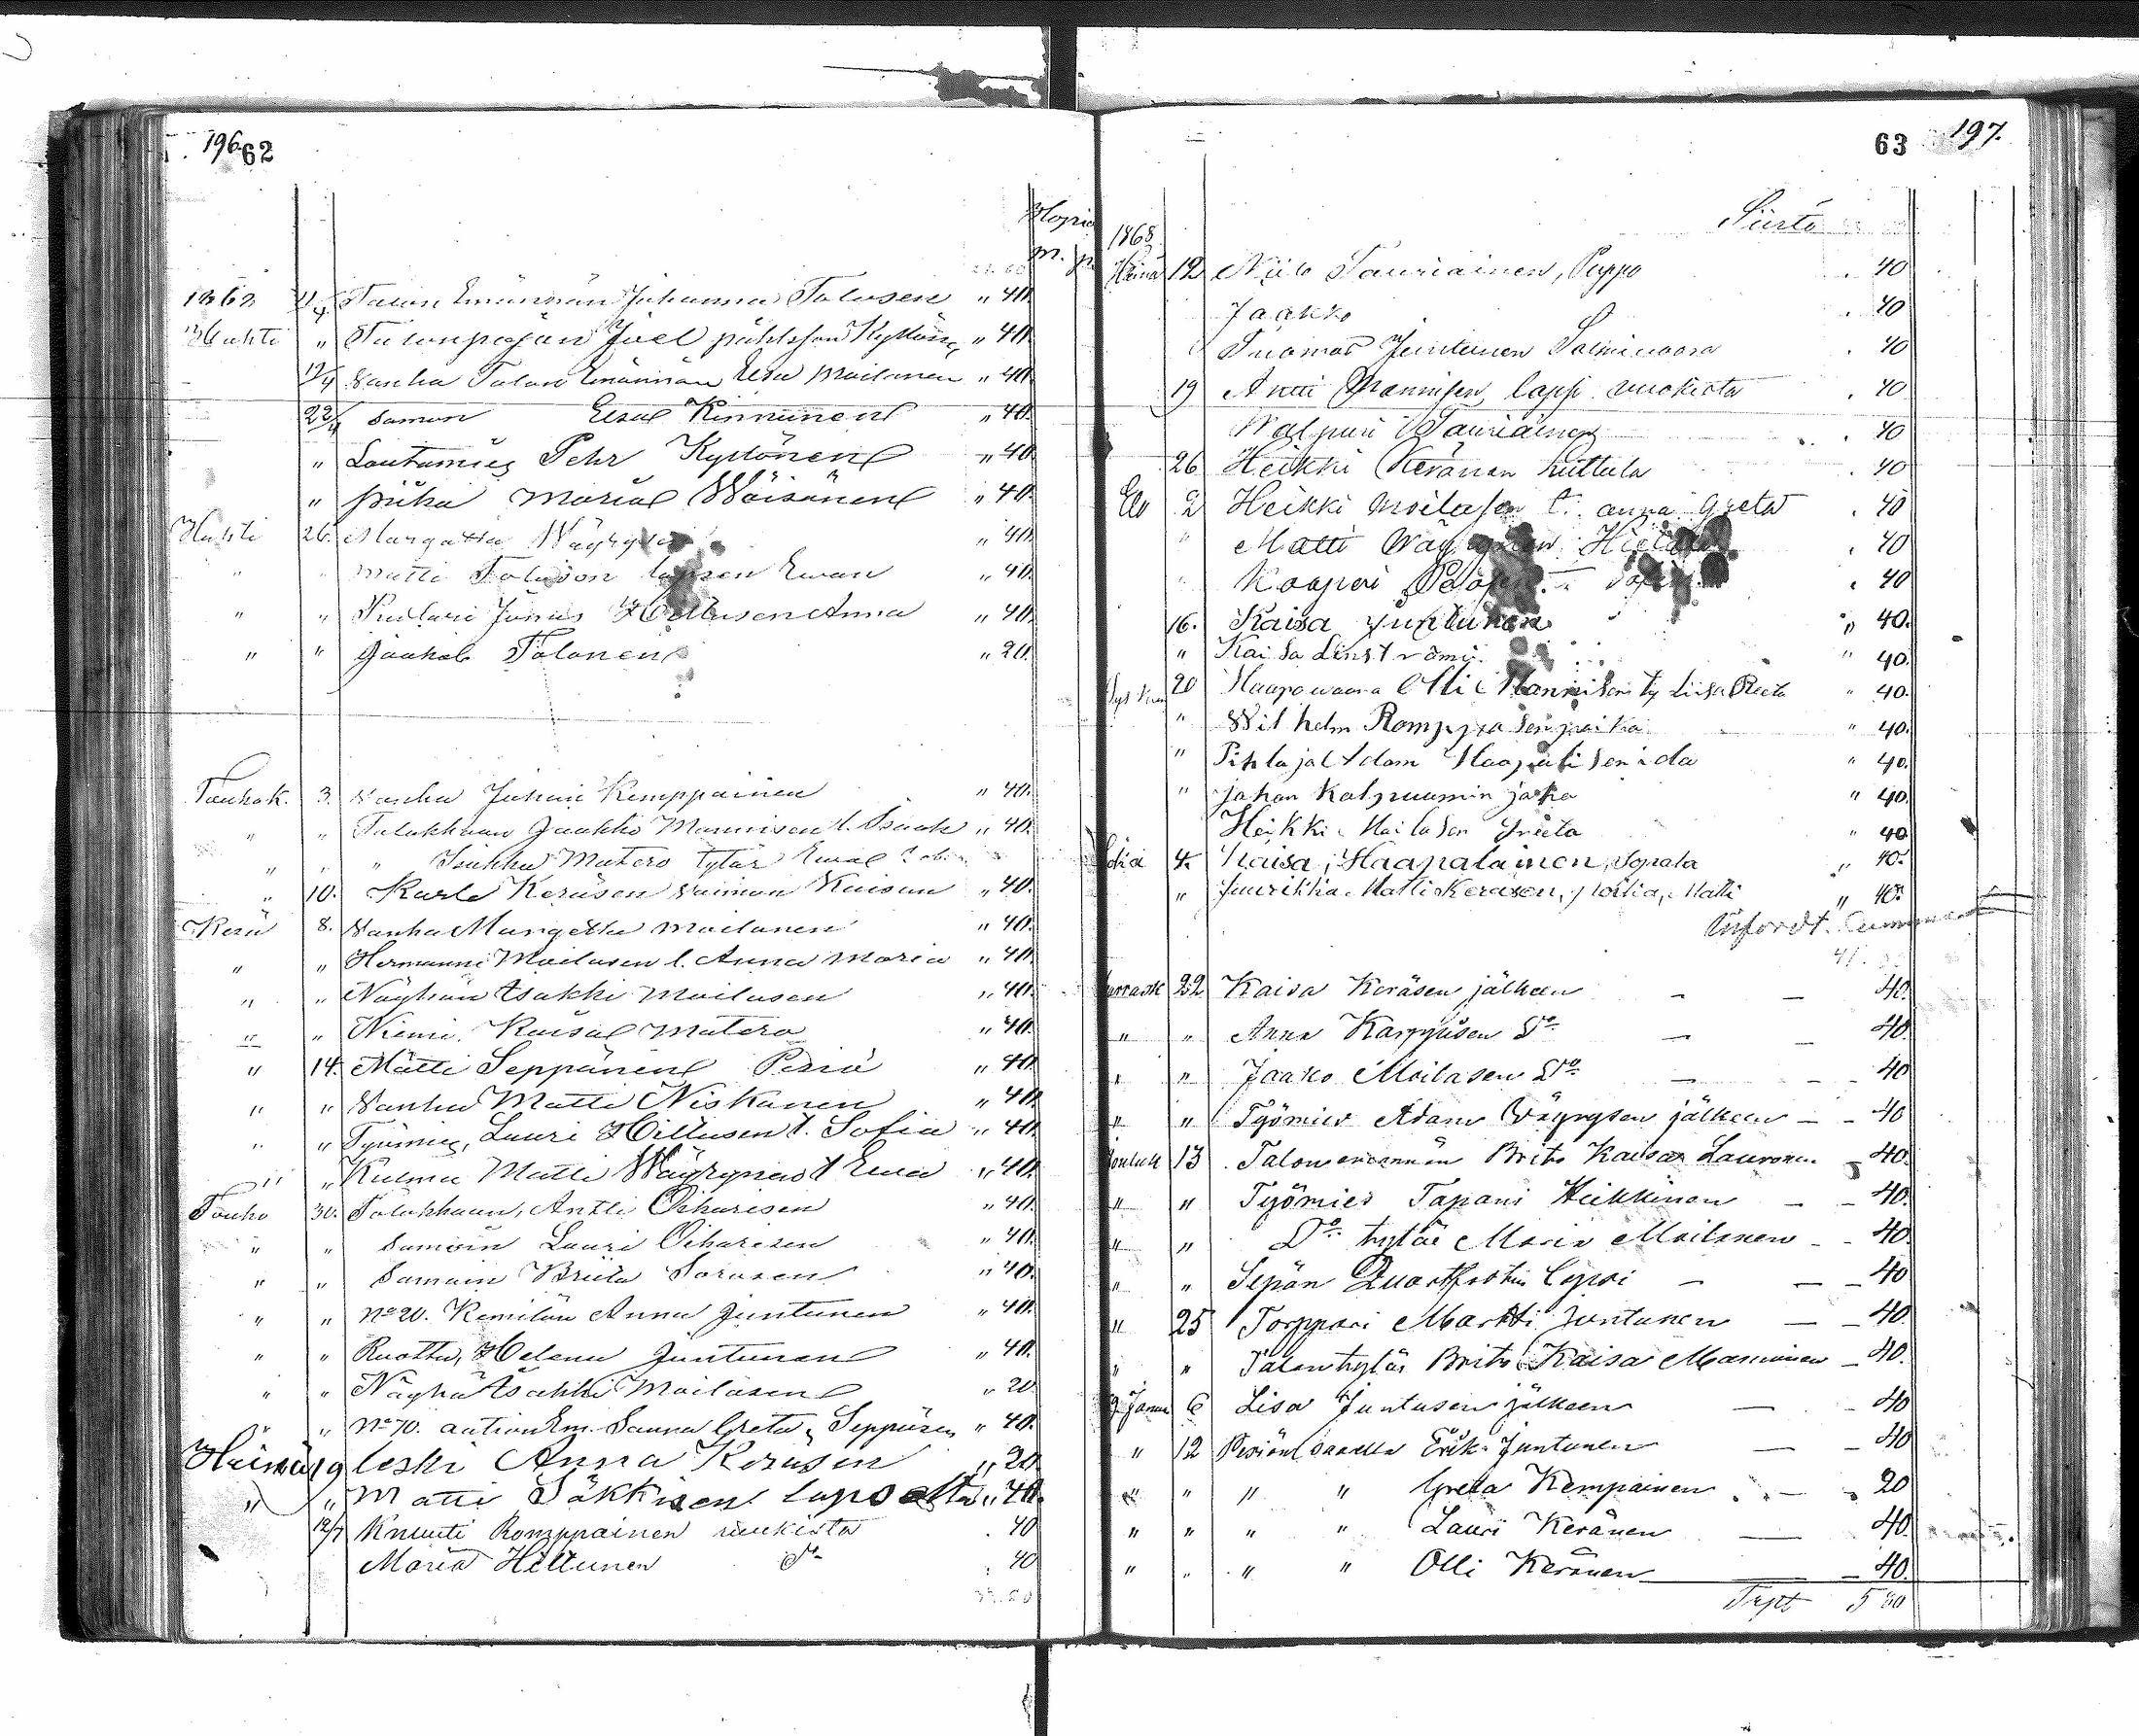 196. 62
m. p.
1868 11/4 Talon Emännän Johanna Tolosen " 40.
Huhti " Talonpojan Joel Kyllönen " 40.
17/4 Vanha Talon Emännän Elsa Moilanen " 40.
22/4 Samon Elsa Kinnunen " 40.
" Lautamies Pehr Kyllönen " 40.
" piika Maria Wäisänen " 40.
Huhti 26. Margatta " 40.
" " Matti Tolosen lapsen Ewan " 40.
" " Junas Hiltusen Anna " 40.
" " Jaakob Tolonen " 20.
Toukok. 3. Vanha Juhani Kemppainen " 40.
" " Tulukkaan Jaakko Mannisen l. Isaak " 40.
" " " Isakka Matero tytär Ewa
" 10. Karlo Keräsen vaimon Kaisan " 40.
Kesä 8. Vanha Margetta Moilanen " 40.
" " Hermanni Moilasen l. Anna Maria " 40.
" " Näyhän Isakki Moilasen " 40.
" " Niemi Kaisa Matero " 40.
" 14. Matti Seppänen " 40.
" " Vanha Matti Niskanen " 40.
" " Työmies, Lauri Hiltusen t. Sofia " 40.
" " Kulma Matti Wäyrynen t Ewa " 40.
Touko 30. Tolukkaan, Antti Oikarisen " 40.
" " Samoin Lauri Oikarisen " 40.
" " Samoin Briita Sorasen " 40.
" " No 20. Kemilän Anna Juntunen " 40.
" " Ruottu, Helena Juntunen " 40.
" " Näyhä Isakki Moilasen " 20
" " No 70. Em. Sanna Greta Seppäsen " 40.
Heinä 19 leski Anna Keräsen " 20
" " Matti Säkkisen lapselta " 40.
12/7 Knuuti Romppainen ruukista . 40
Maria Hiltunen Do . 40
63 197.
Siirto
1868
Heinä 12 Niilo Tauriainen, Puppo . 40
Jaakko . 40
Tuomas Juntunen Salmiwaara . 40
19 Antti Mannisen lapsi ruokista . 40
Walpuri Tauriainen . 40
26 Heikki Keränen huttula . 40
Elo 2 Heikki Moilasen t. anna Greta . 40
" Matti . 40
" Kaapri . 40
16. Kaisa Juntunen " 40.
" Kaisa Linström " 40.
Syys 20 Haapowaara Olli Mannisen ty Liisa Reeta " 40.
" Wilhelm Romppasen poika " 40.
" Pihlaja Adam Haapalisen ida " 40.
" johan " 40
Heikki Moilasen Greeta " 40
Loka 4. Kaisa, Haapalainen, Sopala " 40.
" Juurikka Matti Keräsen, poika, Matti " 40.
Införd t.
41.
Marrask 22 Kaisa Keräsen jälkeen — — 40.
" " Anna Karppisen Do — — 40.
" " Jaako Moilasen Do — — 40
" " Työmies Adam Väyrysen jälkeen — — 40
Jouluk 13 Talonemännän Brita Kaisa Lauronen — 40.
" " Työmies Tapani Heikkinen — — 40.
" " Do tytär Maria Moilanen — — 40.
" " Sepän lapsi — — 40
" 25 Torppari Martti Juntunen — — 40.
" " Talontytär Brita Kaisa Manninen — 40.
Janu 6 Lisa Juntusen jälkeen — — 40
" 12 Erik Juntunen — — 40
" " " " Greta Kempainen — 20
" " " " Lauri Keränen — 40.
" " " " Olli Keränen — 40.
5 80